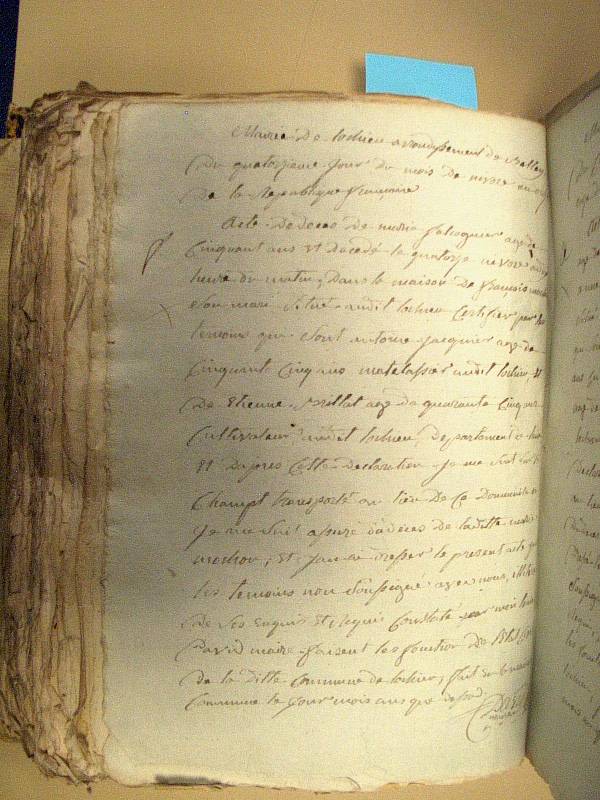 Mairie De lochieu arrondissement de Belley
Du quatorzieme jour du mois de nivose an
De la Republique française
Acte De deces De marie falcoquier agé de
Cinquant ans Et Decedé le quatorze nivose
heure du matin, Dans la maison De francois
Son mari Situé audit lochieu Certifier par
temoins qui Sont antoine jacquier agé de
Cinquante Cinq ans matelassier audit lochieu, Et
De Etienne Brillat agé de quarante Cinq ans
Cultivateur audit lochieu, Departement de
Et Dapres Cette Declaration je me suis Sur le
Champt transporté au lieu De Ce Domicile et
Je me Suit assuré du deces de laditte marie
mochon, Et, jan ai dresser le present acte que
les temoins non Soussigné avec nous,
De Ses Enquis Et Requis Constaté par moi
David maire faisant les fonction De
De la Ditte Commune de lochieu, fait en
Commune le jour mois ans que dessus.